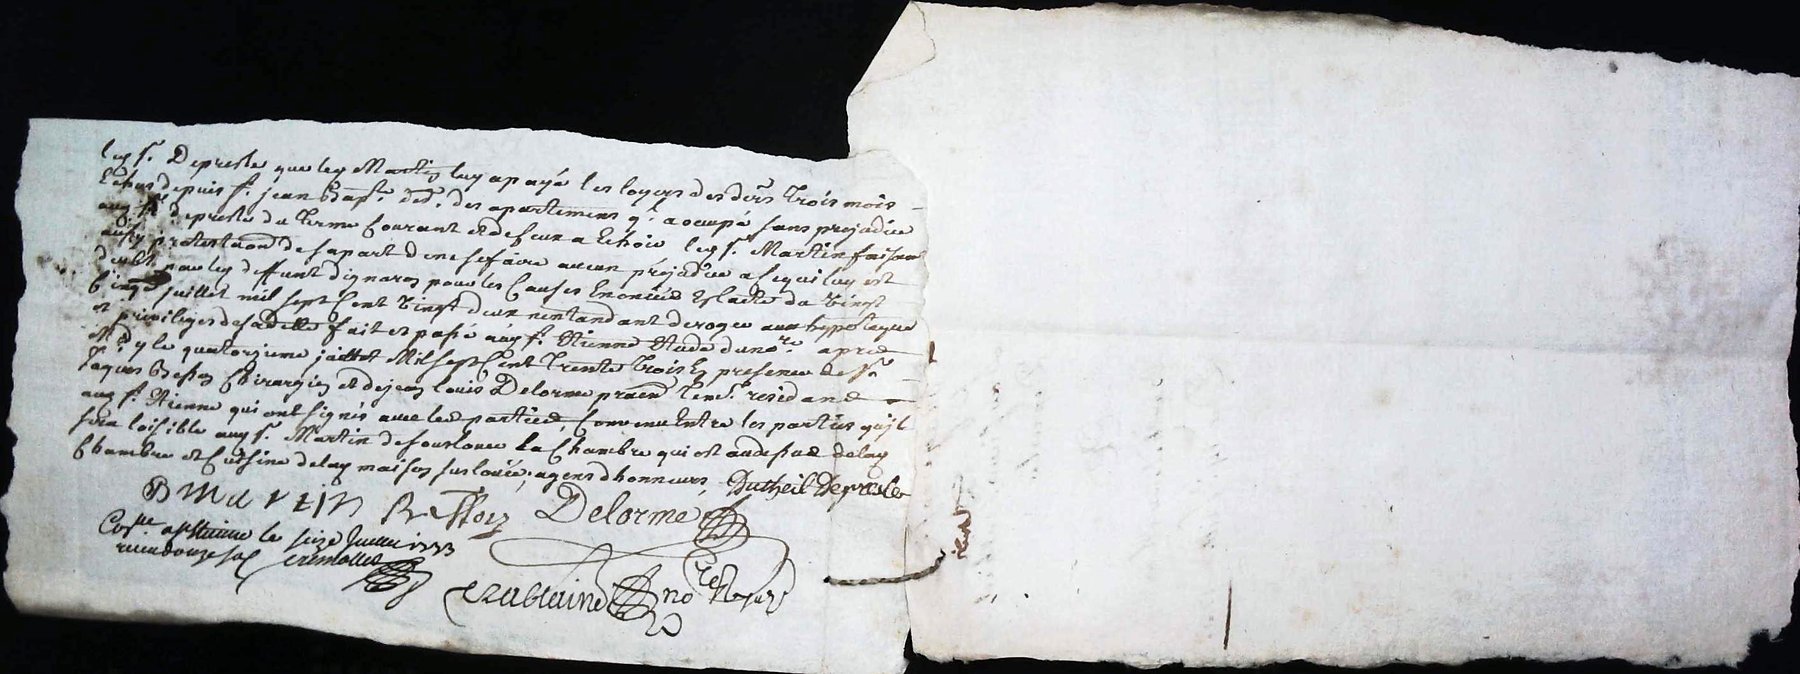 led. sr. Depresle que led. Martin luy a payé les loyers des ders. trois mois
Echus depuis st. jean Bapte. des apartemens qu'il a ocupé sans prejudice
aud. sr. depresle du terme Courant et de ceux a Echoir led. sr. Martin faisant
aussy protestaon de sa part de ne se faire aucun préjudice a ce qui luy est
deub par led. deffunt pour les Causes Enoncées Es lacte du vingt
Cinq juillet mil sept Cent vingt deux nentandant deroger aux hypoteques
et privileges de fait et passé aud. st. Etienne Etude du nore. apres
Midy le quatorzieme juillet Mil sept Cent trente trois En presence de sr.
Jaques Besson Chirurgien et de jean louis Delorme praen. residans
aud. st. Etienne qui ont signés avec les parties, Convenu Entre les parties qu'il
sera loisible aud. sr. Martin de souslouer la Chambre qui est audessus de lad.
Chambre et Cuisine de lad. maison suslouée; agens dhonneurs, Dutheil Depresles
B martin Besson Delorme
Conlle. a st Etienne le seize Juillet 1733
recu douze sols
nore Royal